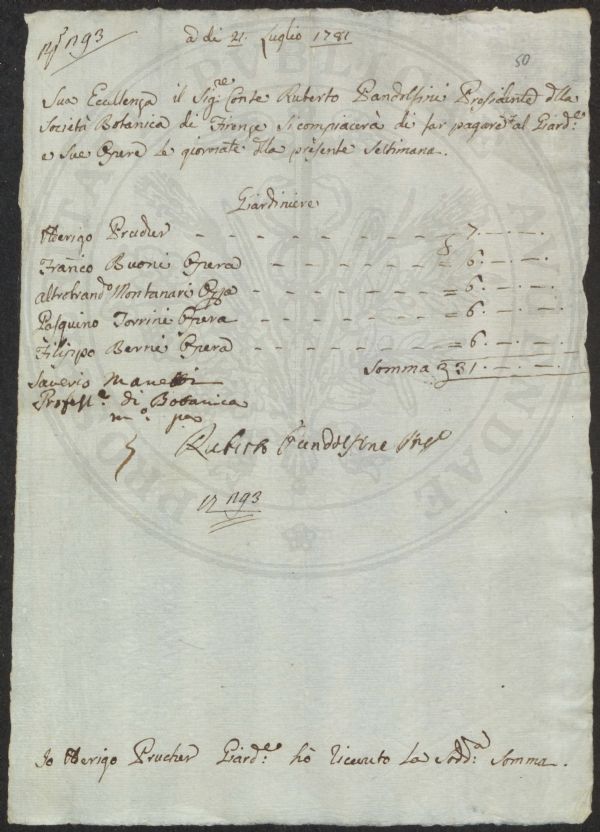 N.° 1793
a di 21. Luglio 1781
50
Sua Eccellenza il Sig.re Conte Ruberto Pandolfini Presidente della
Società Botanica di Firenze si compiacerà di far pagare al Giard.e
e sue Opere le giornate della presente Settimana.
Giardiniere
Arrigo Prucher - - - - - - - - - 7. — . — .
Franco Buoni Opera - - - - - - - = 6. — . — .
Montanari Opera - - - - - = 6. — . — .
Pasquino Torrini Opera - - - - - - = 6. — . — .
Filippo Berni Opera - - - - - - - = 6. — . — .
Somma 31. — . — .
Saverio Manetti
Profess.e di Botanica
m.o pa
Ruberto Pandolfini
1793
Io Arrigo Prucher Giard.e hò ricevuto la Sod.a Somma.